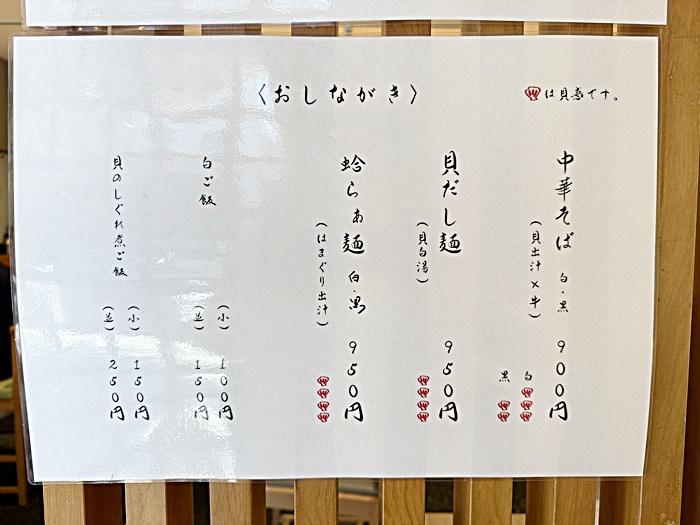 〈おしながき〉
は貝感です。
中華そば 白・黒 900円
(貝出汁×牛)
白
黒
貝だし麺 950円
(貝白湯)
蛤らぁ麺 白・黒 950円
(はまぐり出汁)
白ご飯
(小) 100円
(並) 150円
貝のしぐれ煮ご飯
(小) 150円
(並) 250円